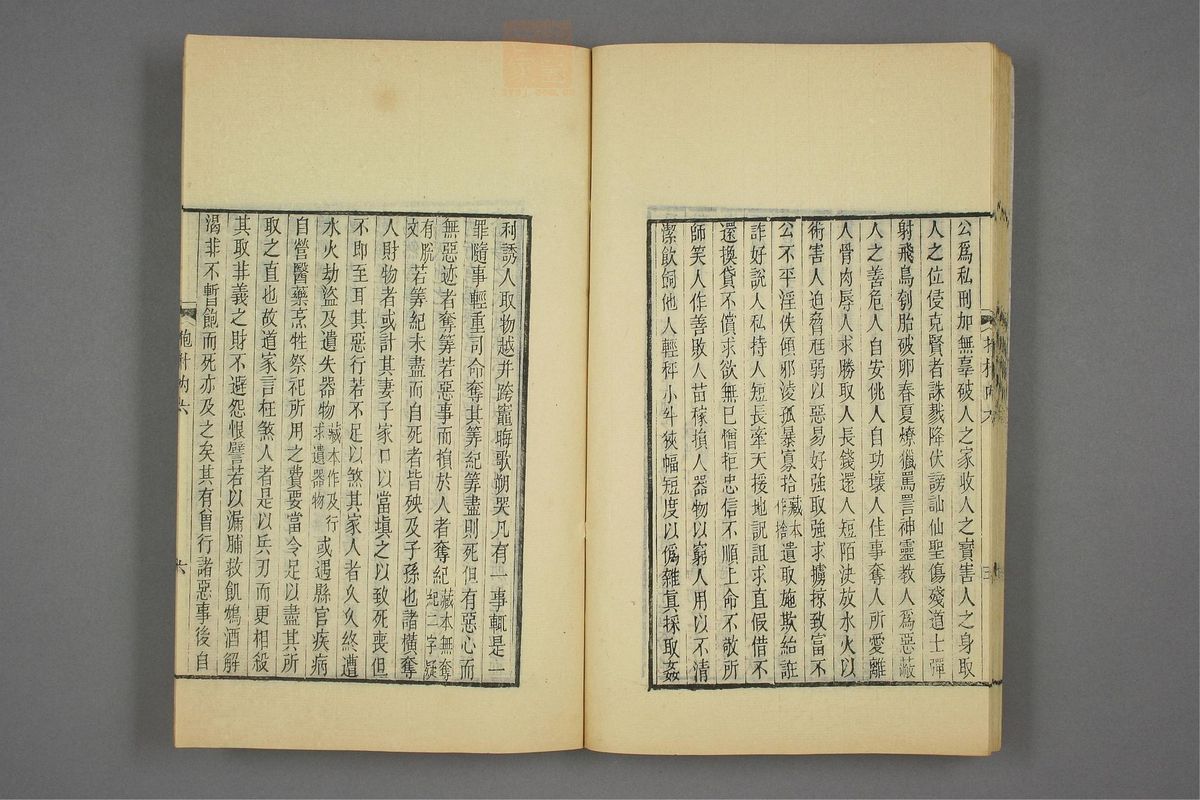 公爲私刑加無辜破人之家收人之寶害人之身取
人之位侵克賢者誅戮降伏謗訕仙聖傷殘道士彈
射飛鳥刳胎破卵春夏燎獵罵詈神靈教人爲惡蔽
人之善危人自安佻人自功壞人佳事奪人所愛離
人骨肉辱人求勝取人長錢還人短陌決放水火以
術害人迫脅尪弱以惡易好強取強求擄掠致富不
公不平淫佚傾邪淩孤暴寡拾藏本作捨遺取施欺紿誑
詐好說人私持人短長牽天援地詋詛求直假借不
還換貸不償求欲無已憎拒忠信不順上命不敬所
師笑人作善敗人苗稼損人器物以窮人用以不清
潔飲飼他人輕秤小斗狹幅短度以僞雜真採取姦
利誘人取物越井跨竈晦歌朔哭凡有一事輒是一
罪隨事輕重司命奪其筭紀筭盡則死但有惡心而
無惡迹者奪筭若惡事而損於人者奪紀藏本無奪紀二字疑
有脫文若筭紀未盡而自死者皆殃及子孫也諸橫奪
人財物者或計其妻子家口以當填之以致死喪但
不即至耳其惡行若不足以煞其家人者久久終遭
水火劫盜及遺失器物藏本作及行求遺器物或遇縣官疾病
自營醫藥烹牲祭祀所用之費要當令足以盡其所
取之直也故道家言枉煞人者是以兵刃而更相殺
其取非義之財不避怨恨譬若以漏脯救飢鴆酒解
渴非不暫飽而死亦及之矣其有曾行諸惡事後自
六